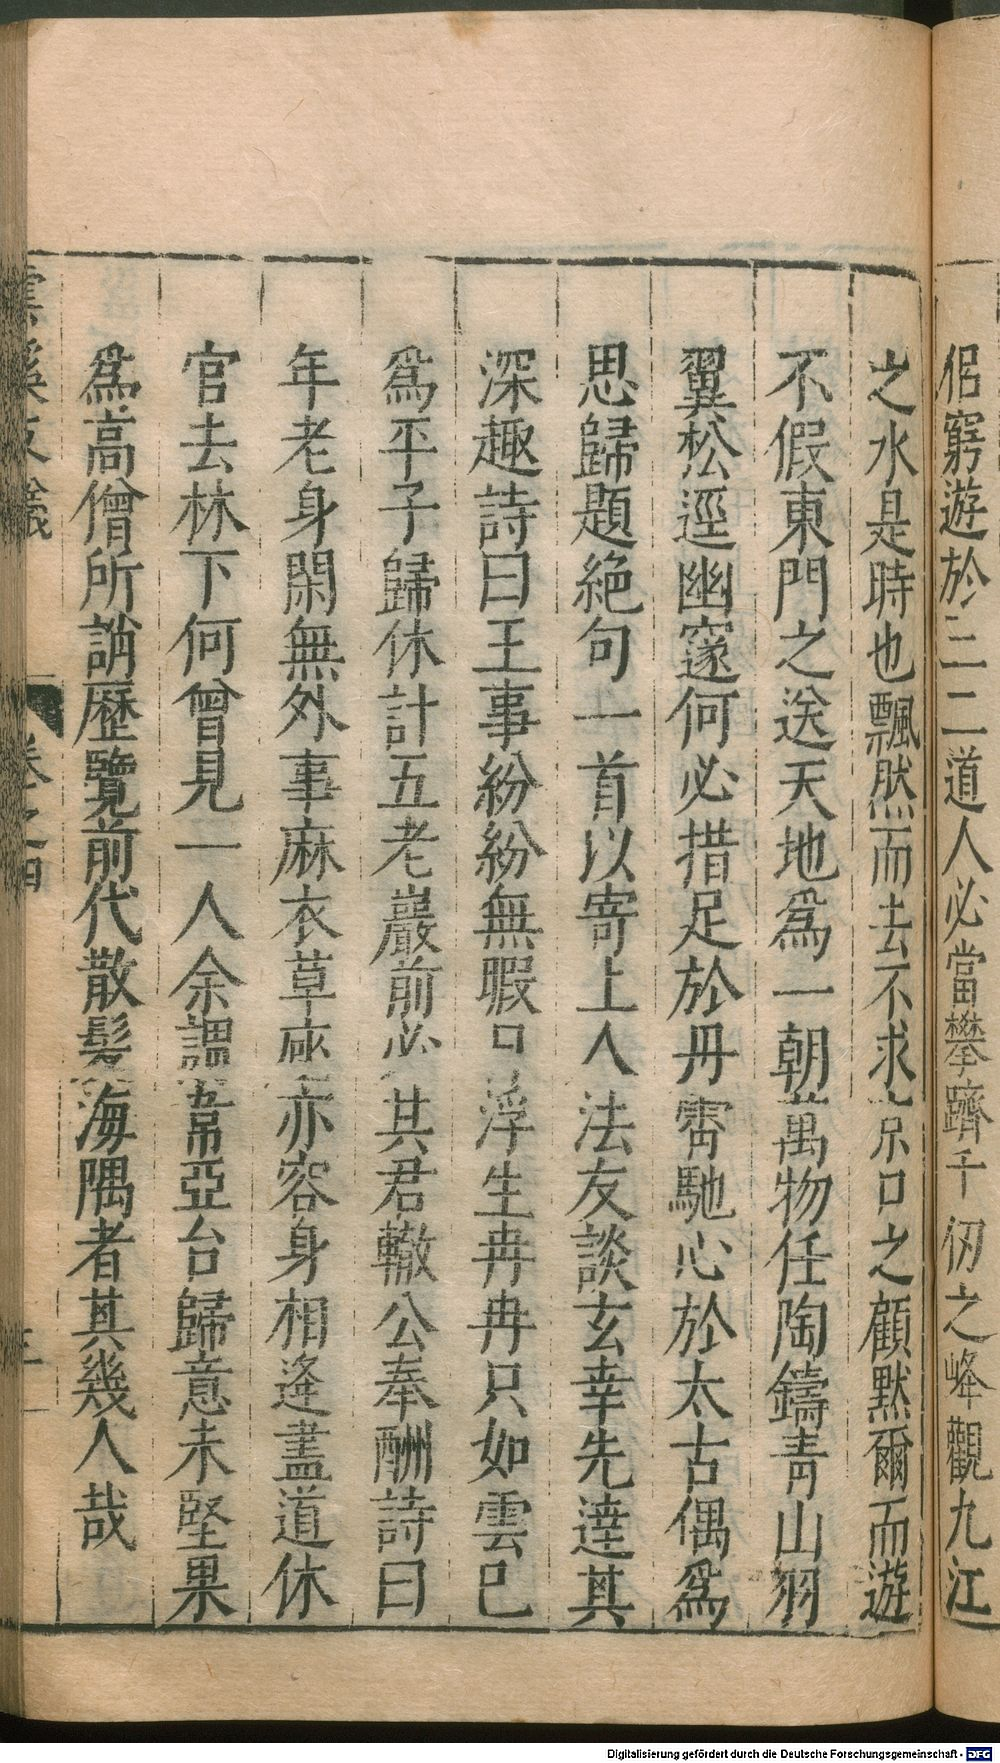 侶窮遊於二二道人必當攀躋千仞之峰觀九江
之水是時也飄然而去不求 口之顧默爾而遊
不假東門之送天地爲一朝萬物任陶鑄青山羽
翼松逕幽窱何必措足於丹霄馳心於太古偶爲
思歸題絶句一首以寄上人法友談玄幸先達其
深趣詩曰王事紛紛無暇日浮生冉冉只如雲已
爲平子歸休計五老巖前必其君轍公奉酬詩曰
年老身閑無外事麻衣草座亦容身相逢盡道休
官去林下何曾見一人余謂韋亞台歸意未堅果
爲高僧所誚歷覽前代散髮海隅者其幾人哉
雲溪友議 卷之四
Digitalisierung gefördert durch die Deutsche Forschungsgemeinschaft - DFG